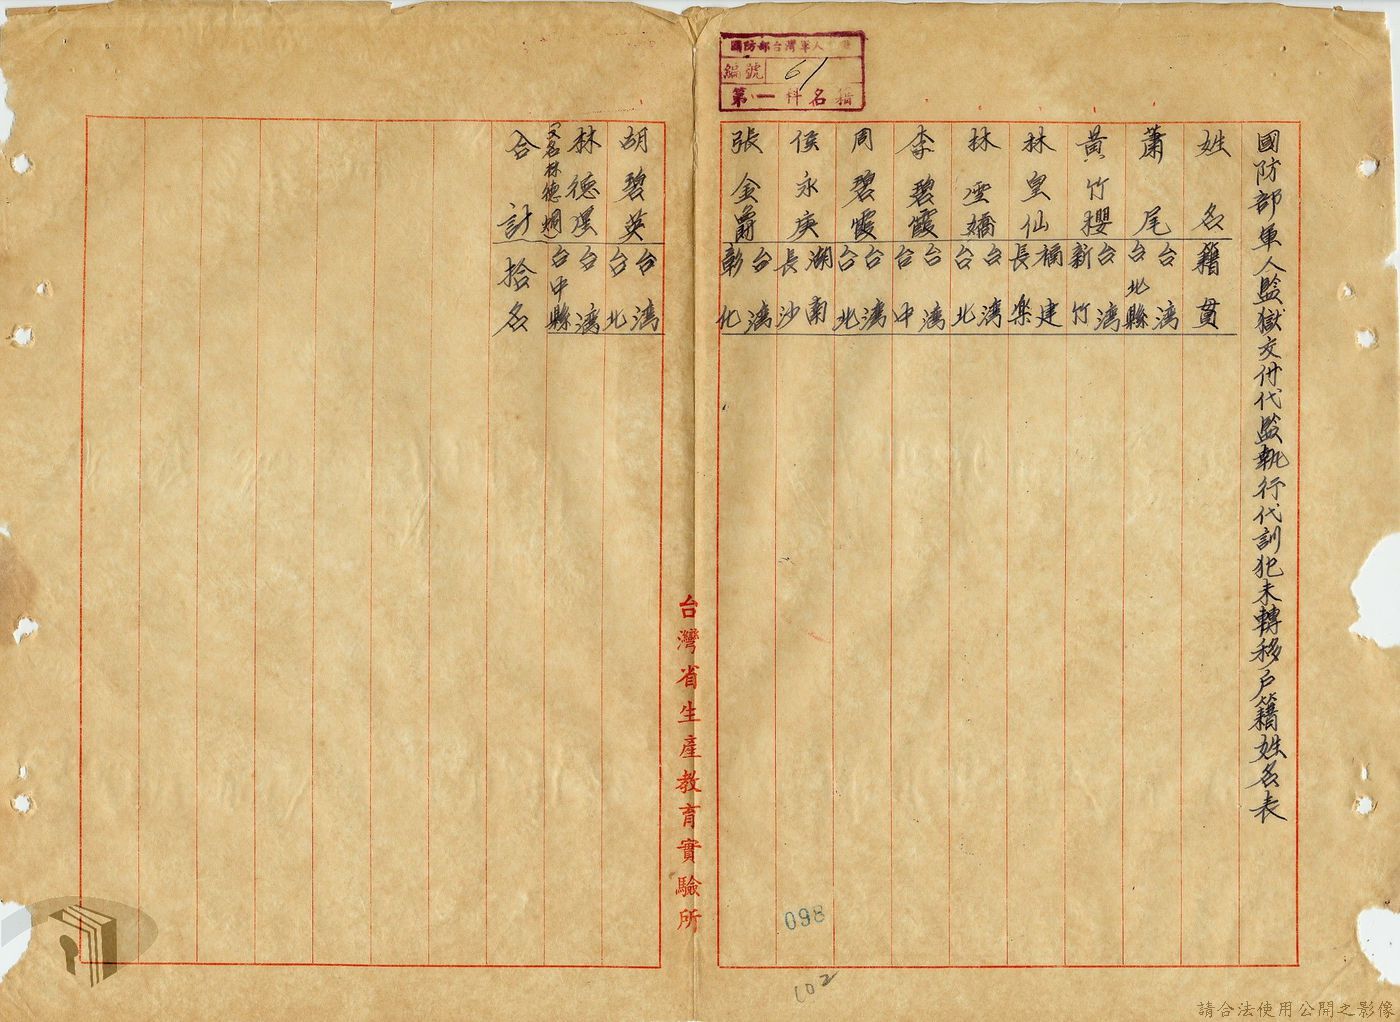 國防部台灣軍人
編號 61
第一科名籍
國防部軍人監獄交付代監執行代訓犯未轉移戶籍姓名表
姓名 籍貫
蕭尾 台灣台北縣
黃竹櫻 台灣新竹
林皇仙 福建長樂
林雪嬌 台灣台北
李碧霞 台灣台中
周碧霞 台灣台北
侯永庚 湖南長沙
張金爵 台灣彰化
台灣省生產教育實驗所
胡碧英 台灣台北
林德 台灣台中縣
(又名林德烱)
合計拾名
098
102
請合法使用公開之影像